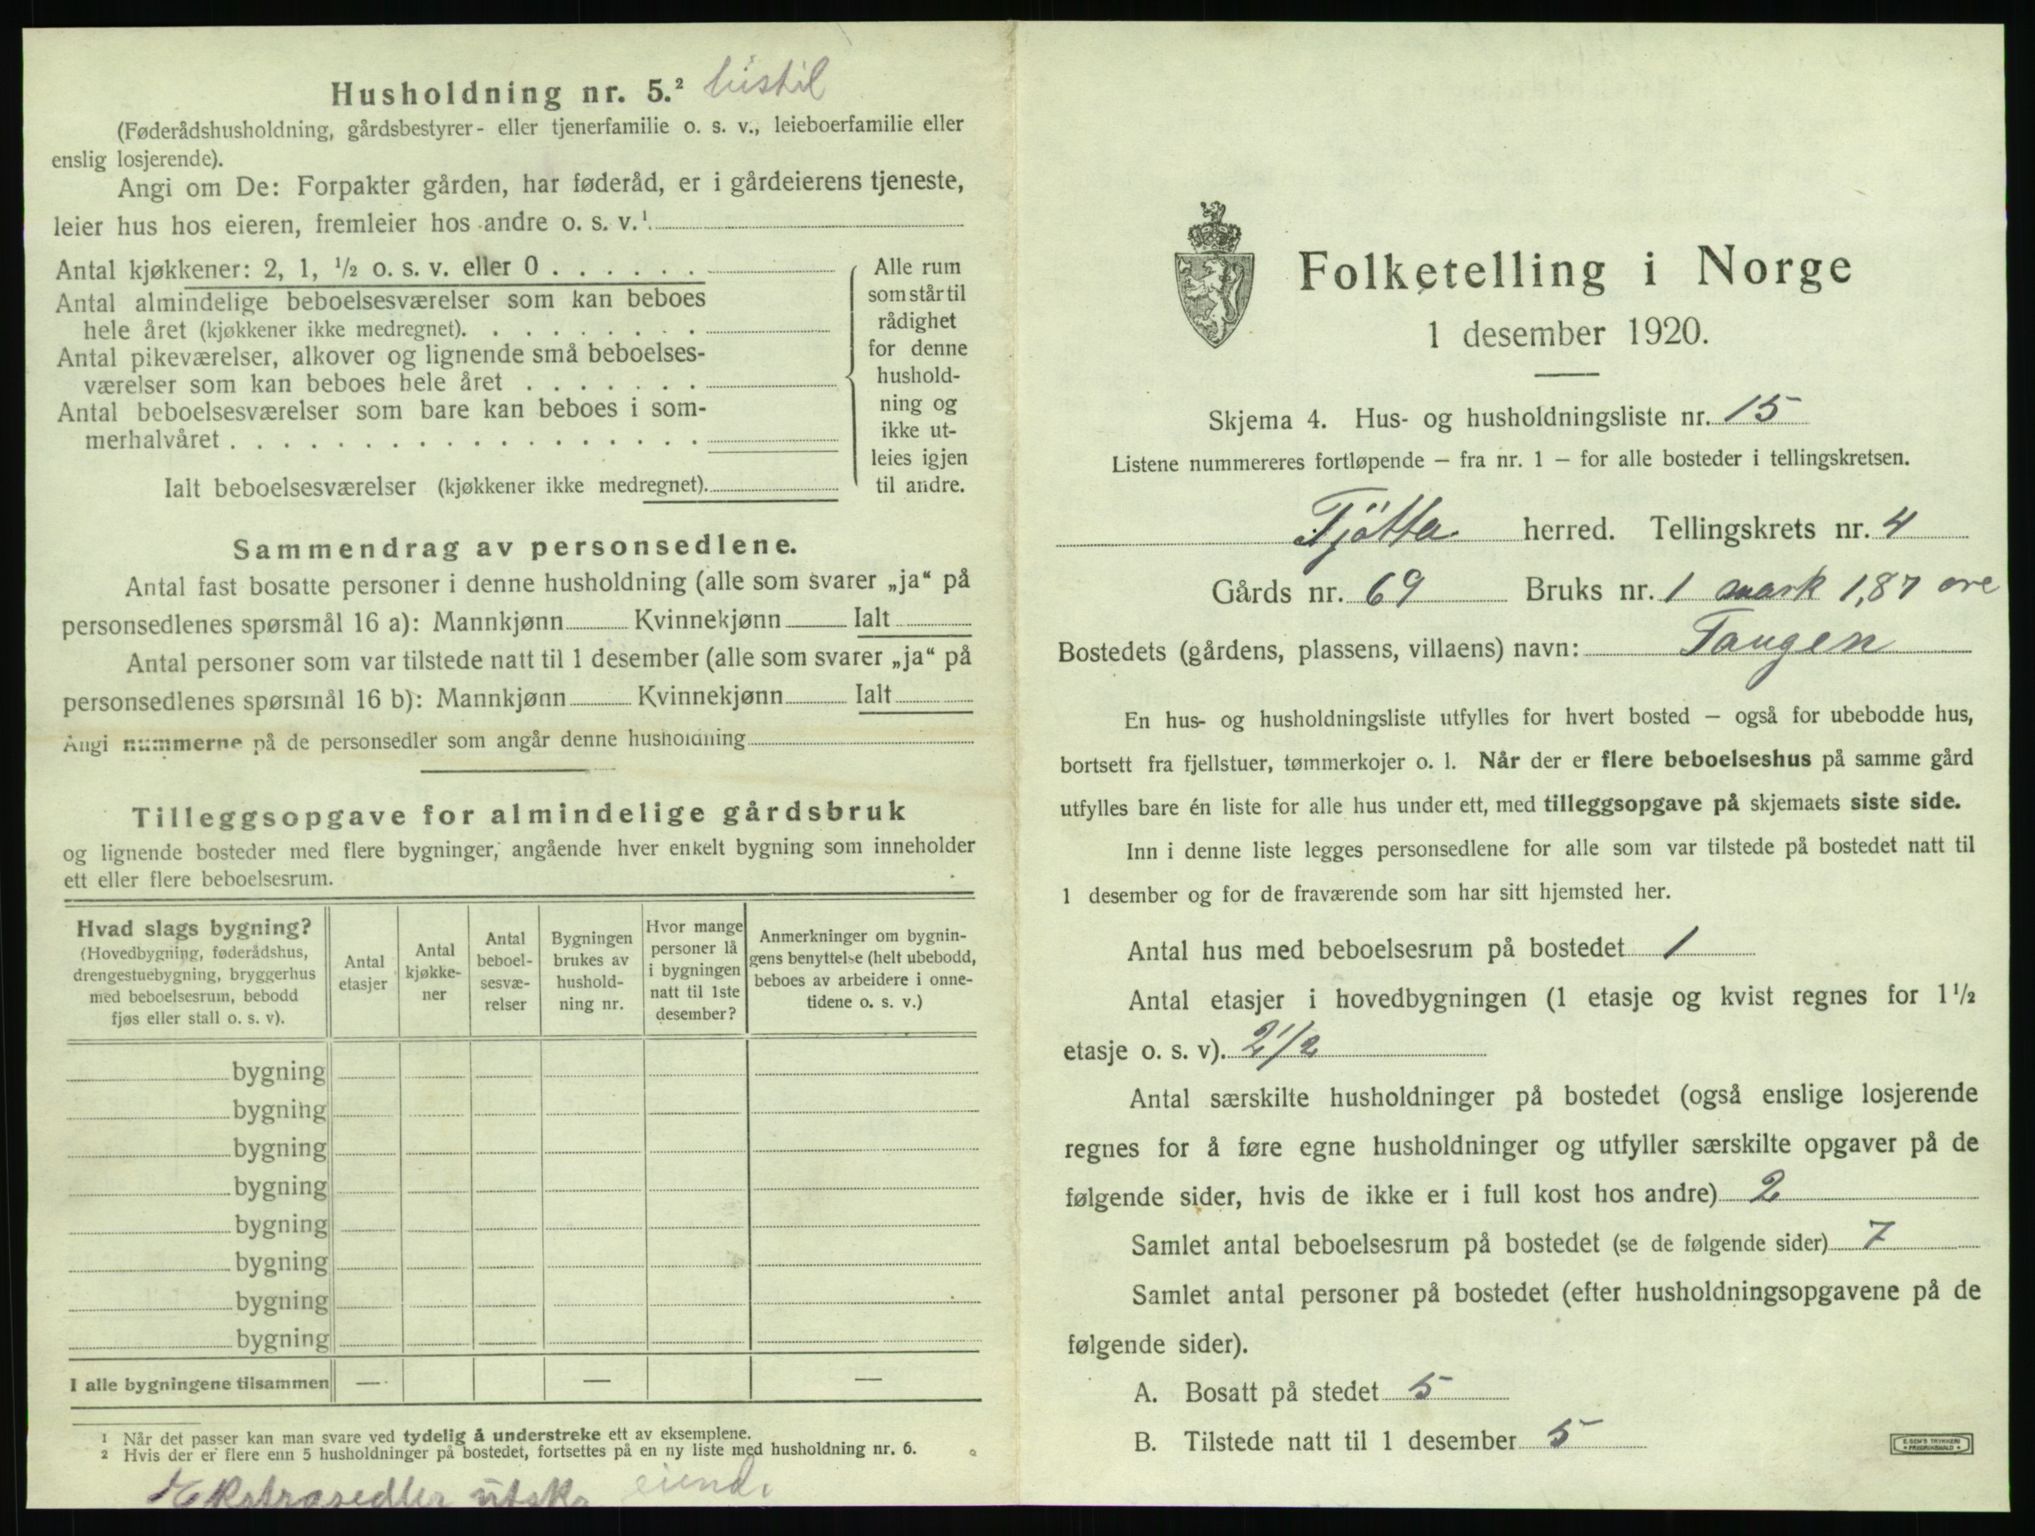 Husholdning nr. 5.²
(Føderådshusholdning, gårdsbestyrer- eller tjenerfamilie o. s. v., leieboerfamilie eller
enslig losjerende).
Angi om De: Forpakter gården, har føderåd, er i gårdeierens tjeneste,
leier hus hos eieren, fremleier hos andre o. s. v.¹
Antal kjøkkener: 2, 1, ½ o. s. v. eller 0 . . . . . .
Antal almindelige beboelsesværelser som kan beboes
hele året (kjøkkener ikke medregnet). . . . . . . . .
Antal pikeværelser, alkover og lignende små beboelses-
værelser som kan beboes hele året . . . . . . .
Antal beboelsesværelser som bare kan beboes i som-
merhalvåret . . . . . . . . . . . . . . . . . .
Ialt beboelsesværelser (kjøkkener ikke medregnet).
Alle rum
som står til
rådighet
for denne
hushold-
ning og
ikke ut-
leies igjen
til andre.
Sammendrag av personsedlene.
Antal fast bosatte personer i denne husholdning (alle som svarer „ja“ på
personsedlenes spørsmål 16 a): Mannkjønn Kvinnekjønn Ialt
Antal personer som var tilstede natt til 1 desember (alle som svarer „ja“ på
personsedlenes spørsmål 16 b): Mannkjønn Kvinnekjønn Ialt
Angi nummerne på de personsedler som angår denne husholdning
Tilleggsopgave for almindelige gårdsbruk
og lignende bosteder med flere bygninger, angående hver enkelt bygning som inneholder
ett eller flere beboelsesrum.
Hvad slags bygning?
(Hovedbygning, føderådshus,
drengestuebygning, bryggerhus
med beboelsesrum, bebodd
fjøs eller stall o. s. v).
Antal
etasjer
Antal
kjøkke-
ner
Antal
beboel-
sesvæ-
relser
Bygningen
brukes av
hushold-
ning nr.
Hvor mange
personer lå
i bygningen
natt til 1ste
desember?
Anmerkninger om bygnin-
gens benyttelse (helt ubebodd,
beboes av arbeidere i onne-
tidene o. s. v.)
bygning
bygning
bygning
bygning
bygning
bygning
bygning
bygning
I alle bygningene tilsammen — — —
¹ Når det passer kan man svare ved tydelig å understreke ett av eksemplene.
² Hvis der er flere enn 5 husholdninger på bostedet, fortsettes på en ny liste med husholdning nr. 6.
Ekstrasedler utskr eiend.
Folketelling i Norge
1 desember 1920.
Skjema 4. Hus- og husholdningsliste nr. 15
Listene nummereres fortløpende – fra nr. 1 – for alle bosteder i tellingskretsen.
Tjötta herred. Tellingskrets nr. 4
Gårds nr. 69 Bruks nr. 1 mark 1,87 øre
Bostedets (gårdens, plassens, villaens) navn: Tangen
En hus- og husholdningsliste utfylles for hvert bosted – også for ubebodde hus,
bortsett fra fjellstuer, tømmerkojer o. l. Når der er flere beboelseshus på samme gård
utfylles bare én liste for alle hus under ett, med tilleggsopgave på skjemaets siste side.
Inn i denne liste legges personsedlene for alle som var tilstede på bostedet natt til
1 desember og for de fraværende som har sitt hjemsted her.
Antal hus med beboelsesrum på bostedet 1
Antal etasjer i hovedbygningen (1 etasje og kvist regnes for 1½
etasje o. s. v). 2 1/2
Antal særskilte husholdninger på bostedet (også enslige losjerende
regnes for å føre egne husholdninger og utfyller særskilte opgaver på de
følgende sider, hvis de ikke er i full kost hos andre) 2
Samlet antal beboelsesrum på bostedet (se de følgende sider) 7
Samlet antal personer på bostedet (efter husholdningsopgavene på de
følgende sider).
A. Bosatt på stedet 5
B. Tilstede natt til 1 desember 5